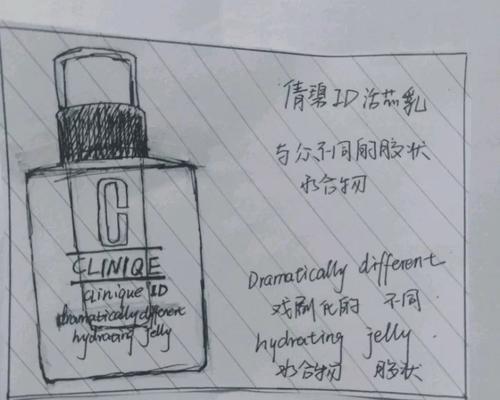 C
CLINIQE
clinique ID
dramatically different
hydrating jelly
倩碧ID活芯乳
与众不同的胶状
水合物
Dramatically different
戏剧化的 不同
hydrating jelly.
水合物 胶状